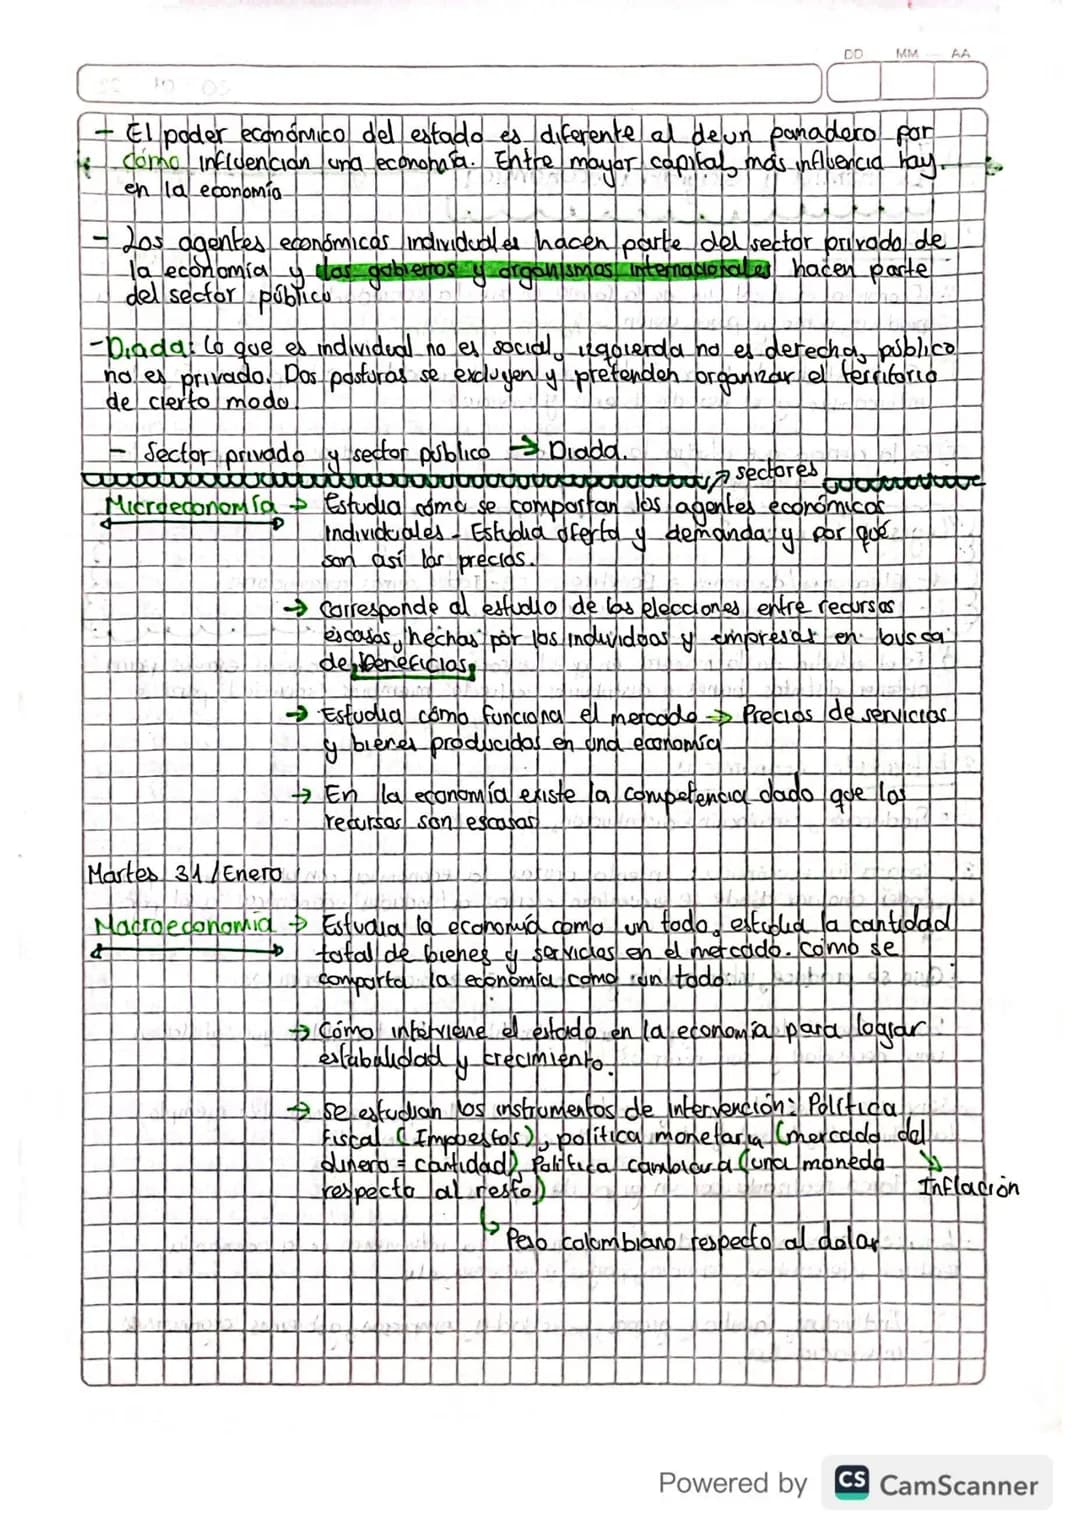 DD MM AA
- El poder económico del estado es diferente al de un panadero por
cómo influencian una economía. Entre mayor capital, más influencia hay
en la economía
- Los agentes económicos individuales hacen parte del sector privado de
la economía y los gobiernos y organismos internacionales hacen parte
del sector público
- Diada: Lo que es individual no es social, izquierda no es derecha, público
no es privado. Dos posturas se excluyen y pretenden organizar el territorio
de cierto modo.
- Sector privado y sector público → Diada.
↗ sectores
Microeconomía → Estudia cómo se comportan los agentes económicos
individuales - Estudia oferta y demanda y por qué
son así los precios.
→ Corresponde al estudio de las elecciones entre recursos
escasos, hechas por los individuos y empresas en busca
de beneficios.
→ Estudia cómo funciona el mercado → Precios de servicios
y bienes producidos en una economía
→ En la economía existe la competencia dado que los
recursos son escasos
Martes 31/Enero
Macroeconomía → Estudia la economía como un todo, estudia la cantidad
total de bienes y servicios en el mercado. Cómo se
comporta la economía como un todo.
→ Cómo interviene el estado en la economía para lograr
estabilidad y crecimiento.
→ se estudian los instrumentos de intervención: Política
Fiscal (Impuestos), política monetaria (mercado del
dinero = cantidad), Política cambiaria (una moneda ↘
respecto al resto) Inflación
↳ Peso colombiano respecto al dolar
Powered by CS CamScanner